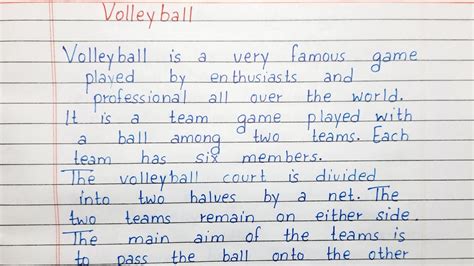 Volleyball
Volleyball is a very famous game
played by enthusiasts and
professional all over the world.
It is a team game played with
a ball among two teams. Each
team has six members.
The volleyball court is divided
into two halves by a net. The
two teams remain on either side.
The main aim of the teams is
to pass the ball onto the other